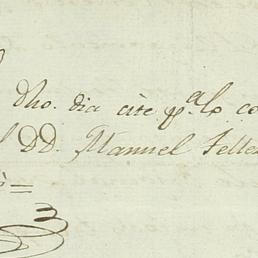 dho. dia cite pa. lo co
DD. Manuel Telle